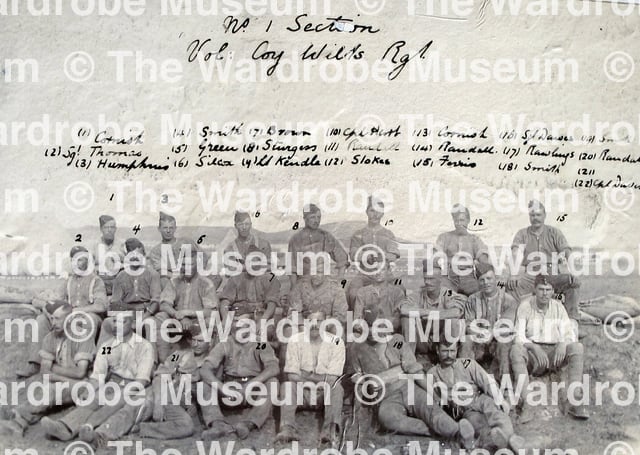 No. 1 Section
Vol: Coy Wilts Rgt
(1) Cornish (4) Smith (7) Brown (10) Cpl (13) Cornish (16) Sgt (19) Smith
(2) Sgt Thomas (5) Green (8) Sturgess (11) (14) Randall (17) Rawlings (20) Randall
(3) Humphries (6) Silcox (9) Lt Kendle (12) Stokes (15) Ferris (18) Smith (21)
(22) Cpl
1 3 6 8 10 12 15
2 4 5 7 9 11
22 21 20 19 18 17
© The Wardrobe Museum © The Wardrobe Museum
Wardrobe Museum © The Wardrobe Museum ©
© The Wardrobe Museum © The Wardrobe Museum
Wardrobe Museum © The Wardrobe Museum ©
© The Wardrobe Museum © The Wardrobe Museum
Wardrobe Museum © The Wardrobe Museum ©
© The Wardrobe Museum © The Wardrobe Museum